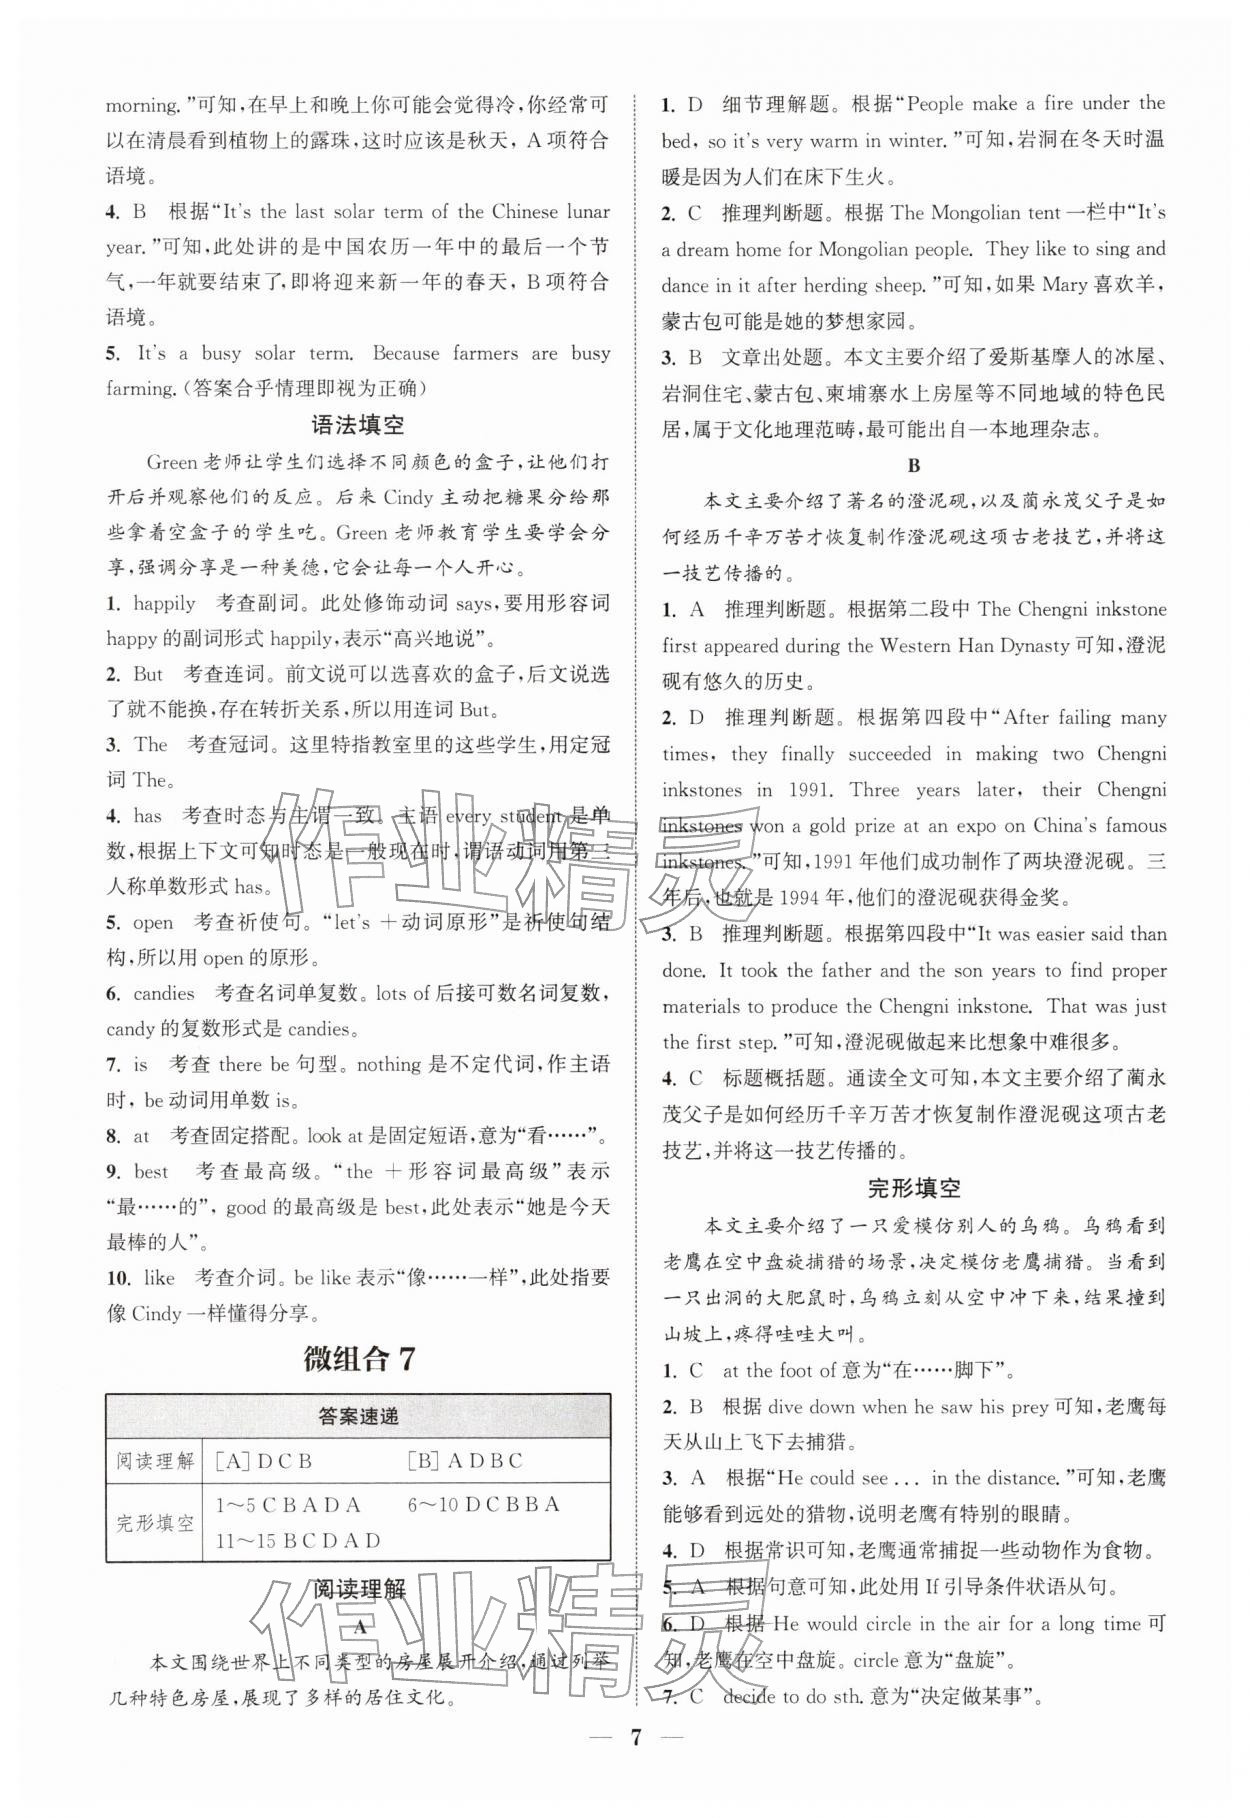 morning. ”可知,在早上和晚上你可能会觉得冷,你经常可
以在清晨看到植物上的露珠,这时应该是秋天, A项符合
语境。
4. B 根据“It's the last solar term of the Chinese lunar
year. ”可知,此处讲的是中国农历一年中的最后一个节
气,一年就要结束了,即将迎来新一年的春天, B项符合
语境。
5. It's a busy solar term. Because farmers are busy
farming. (答案合乎情理即视为正确)
语法填空
Green老师让学生们选择不同颜色的盒子,让他们打
开后并观察他们的反应。后来Cindy主动把糖果分给那
些拿着空盒子的学生吃。Green老师教育学生要学会分
享,强调分享是一种美德,它会让每一个人开心。
1. happily 考查副词。此处修饰动词says,要用形容词
happy的副词形式happily,表示“高兴地说”。
2. But 考查连词。前文说可以选喜欢的盒子,后文说选
了就不能换,存在转折关系,所以用连词But。
3. The 考查冠词。这里特指教室里的这些学生,用定冠
词The。
4. has 考查时态与主谓一致。主语every student是单
数,根据上下文可知时态是一般现在时,谓语动词用第三
人称单数形式has。
5. open 考查祈使句。“let's ＋动词原形”是祈使句结
构,所以用open的原形。
6. candies 考查名词单复数。lots of后接可数名词复数,
candy的复数形式是candies。
7. is 考查there be句型。nothing是不定代词,作主语
时, be动词用单数is。
8. at 考查固定搭配。look at是固定短语,意为“看……”。
9. best 考查最高级。“the ＋形容词最高级”表示
“最……的”, good的最高级是best,此处表示“她是今天
最棒的人”。
10. like 考查介词。be like表示“像……一样”,此处指要
像Cindy一样懂得分享。
微组合7
答案速递
阅读理解 [A] D C B [B] A D B C
完形填空 1～5 C B A D A 6～10 D C B B A
11～15 B C D A D
阅读理解
A
本文围绕世界上不同类型的房屋展开介绍,通过列举
几种特色房屋,展现了多样的居住文化。
1. D 细节理解题。根据“People make a fire under the
bed, so it's very warm in winter. ”可知,岩洞在冬天时温
暖是因为人们在床下生火。
2. C 推理判断题。根据The Mongolian tent一栏中“It's
a dream home for Mongolian people. They like to sing and
dance in it after herding sheep. ”可知,如果Mary喜欢羊,
蒙古包可能是她的梦想家园。
3. B 文章出处题。本文主要介绍了爱斯基摩人的冰屋、
岩洞住宅、蒙古包、柬埔寨水上房屋等不同地域的特色民
居,属于文化地理范畴,最可能出自一本地理杂志。
B
本文主要介绍了著名的澄泥砚,以及蔺永茂父子是如
何经历千辛万苦才恢复制作澄泥砚这项古老技艺,并将这
一技艺传播的。
1. A 推理判断题。根据第二段中The Chengni inkstone
first appeared during the Western Han Dynasty可知,澄泥
砚有悠久的历史。
2. D 推理判断题。根据第四段中“After failing many
times, they finally succeeded in making two Chengni
inkstones in 1991. Three years later, their Chengni
inkstones won a gold prize at an expo on China's famous
inkstones. ”可知, 1991年他们成功制作了两块澄泥砚。三
年后,也就是1994年,他们的澄泥砚获得金奖。
3. B 推理判断题。根据第四段中“It was easier said than
done. It took the father and the son years to find proper
materials to produce the Chengni inkstone. That was just
the first step. ”可知,澄泥砚做起来比想象中难很多。
4. C 标题概括题。通读全文可知,本文主要介绍了蔺永
茂父子是如何经历千辛万苦才恢复制作澄泥砚这项古老
技艺,并将这一技艺传播的。
完形填空
本文主要介绍了一只爱模仿别人的乌鸦。乌鸦看到
老鹰在空中盘旋捕猎的场景,决定模仿老鹰捕猎。当看到
一只出洞的大肥鼠时,乌鸦立刻从空中冲下来,结果撞到
山坡上,疼得哇哇大叫。
1. C at the foot of意为“在……脚下”。
2. B 根据dive down when he saw his prey可知,老鹰每
天从山上飞下去捕猎。
3. A 根据“He could see ... in the distance. ”可知,老鹰
能够看到远处的猎物,说明老鹰有特别的眼睛。
4. D 根据常识可知,老鹰通常捕捉一些动物作为食物。
5. A 根据句意可知,此处用If引导条件状语从句。
6. D 根据He would circle in the air for a long time可
知,老鹰在空中盘旋。circle意为“盘旋”。
7. C decide to do sth. 意为“决定做某事”。
— 7 —
作业精灵
作业精灵